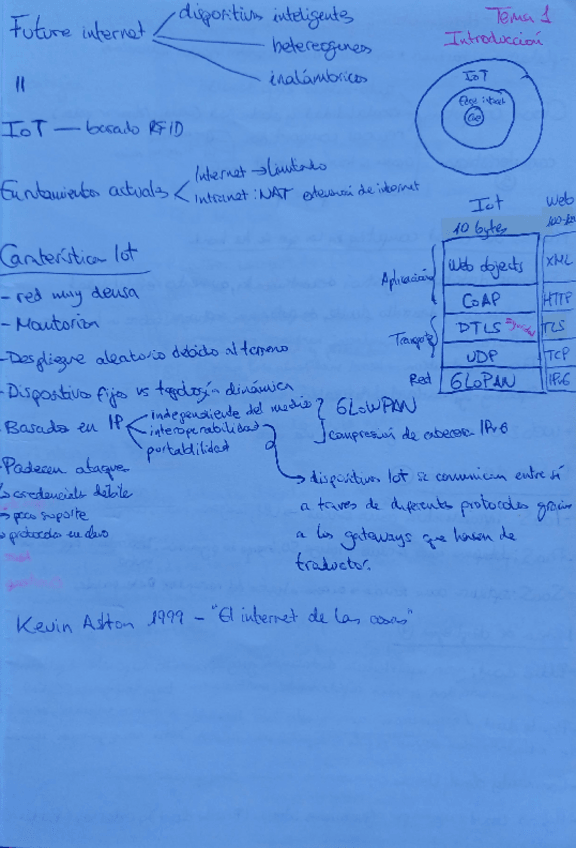 Tema 1
Introducción
Future internet
dispositivos inteligentes
heterogeneos
inalámbricos
IoT
=
IoT — basado RFID
actuales
Internet → Limitado
intranet: NAT extensión de internet
IoT
Web
10 bytes
Aplicación
Web objects
XML
CoAP
HTTP
Transporte
DTLS
TLS
UDP
TCP
Red
6LoPAN
IPv6
Caraterística Iot
- red muy densa
- Despliegue aleatorio debido al terreno
- Dispositivo fijos vs topología dinámica
- Basados en IP
independiente del medio
interoperabilidad
portabilidad
6LoWPAN
compresión de cabecera IPv6
- Padecen ataque
credenciales débile
→ poco soporte
→ protocolo en claro
→ dispositivos Iot se comunican entre sí
a través de diferentes protocolos gracias
a los gateways que hacen de
traductor.
Kevin Asthon 1999 - "El internet de las cosas"